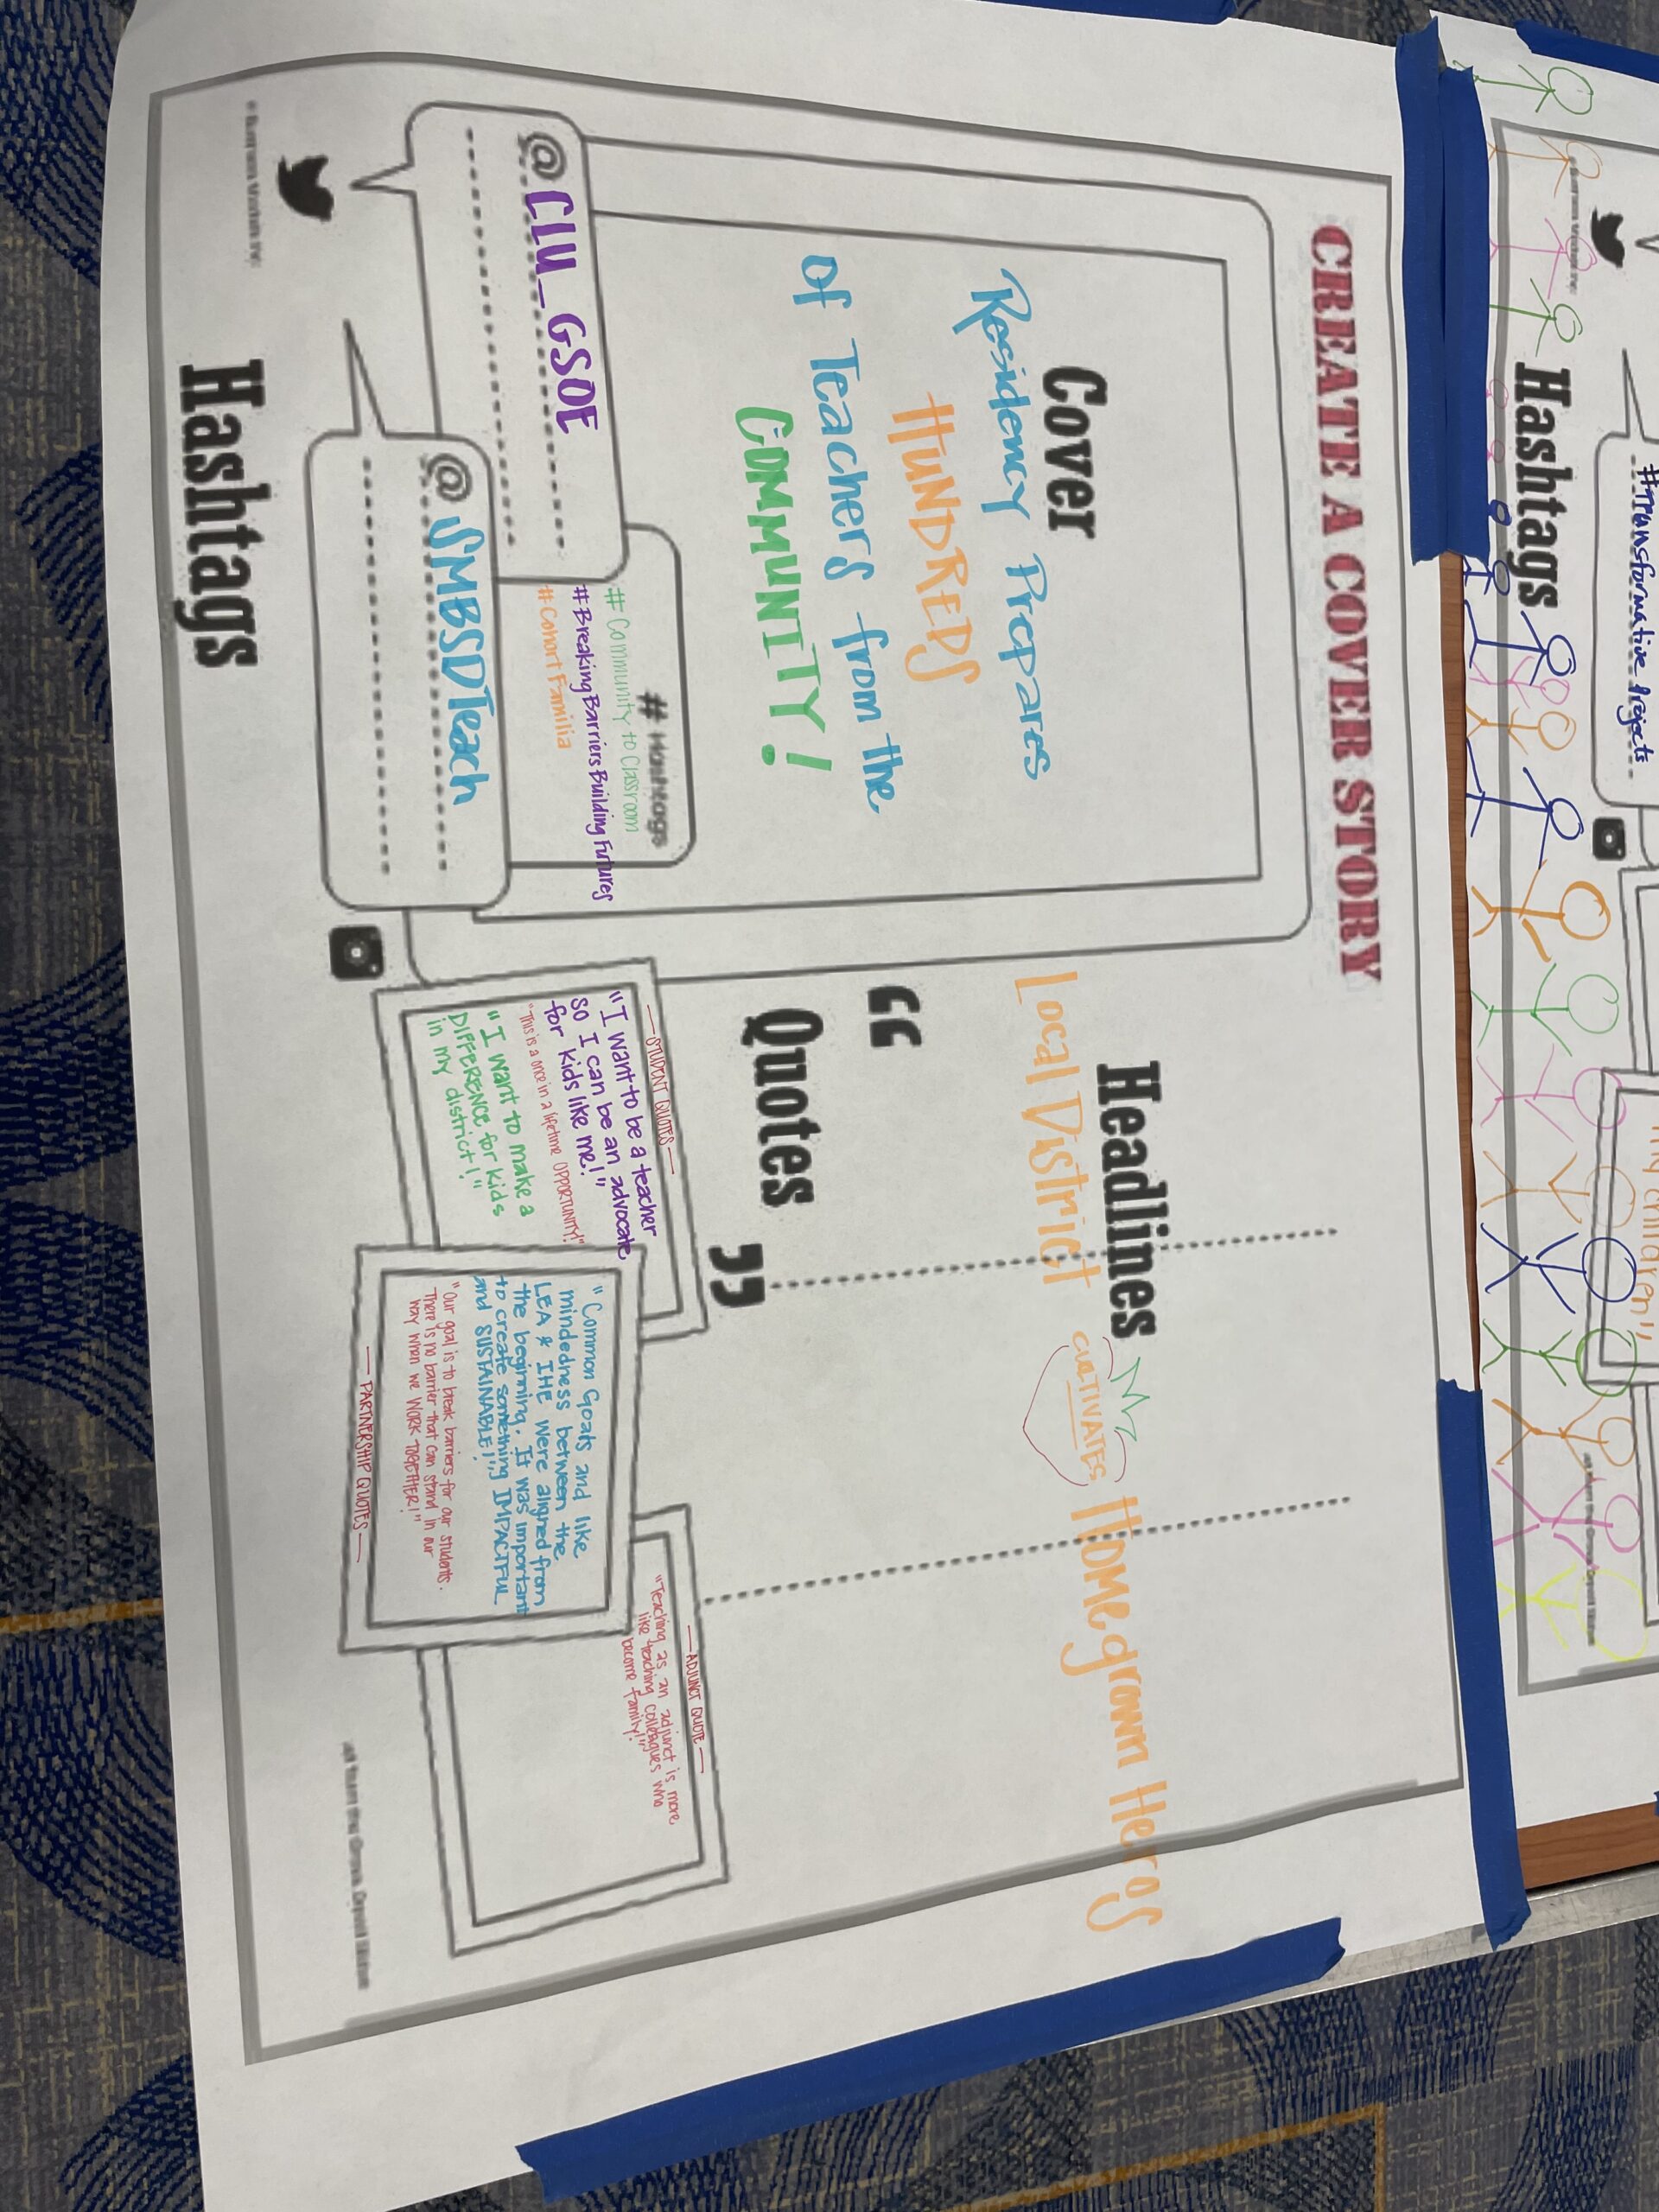 CREATE A COVER STORY
Cover
Residency Prepares
HUNDREDS
of Teachers from the
COMMUNITY!
Headlines
Local District CULTIVATES Homegrown Heros
“
Quotes
”
@CLU_GSOE
# Hashtags
# Community to Classroom
# BreakingBarriersBuilding Futures
# CohortFamilia
@SMBSDTeach
Hashtags
— STUDENT QUOTES —
"I want to be a teacher
so I can be an advocate
for kids like me!"
"This is a once in a lifetime OPPORTUNITY!"
"I want to make a
DIFFERENCE for kids
in my district!"
"Common Goals and like
mindedness between the
LEA & IHE were aligned from
the beginning. It was important
to create something IMPACTFUL
and SUSTAINABLE!"
"Our goal is to break barriers for our students.
There is no barrier that can stand in our
way when we WORK TOGETHER!"
— PARTNERSHIP QUOTES —
— ADJUNCT QUOTE —
"Teaching as an adjunct is more
like teaching colleagues who
become family!"
#Transformative Projects
Hashtags
children"